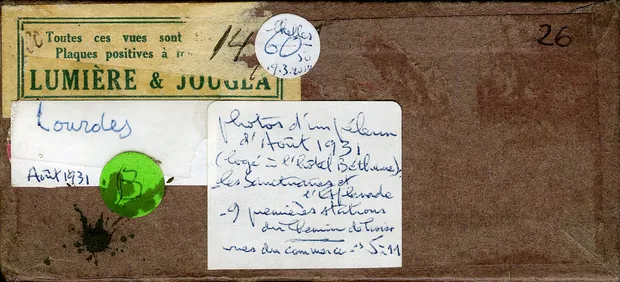 Toutes ces vues sont
Plaques positives à
LUMIÈRE & JOUGLA
14
Chelles
60
50
19.3.2014
26
Lourdes
Août 1931
B
photos d'un pélerin
d'Août 1931
(logé à l'hôtel Béthanie)
- les Sanctuaires et
l'Esplanade
- 9 premières stations
du Chemin de Croix
vues du commerce n°s 5-11